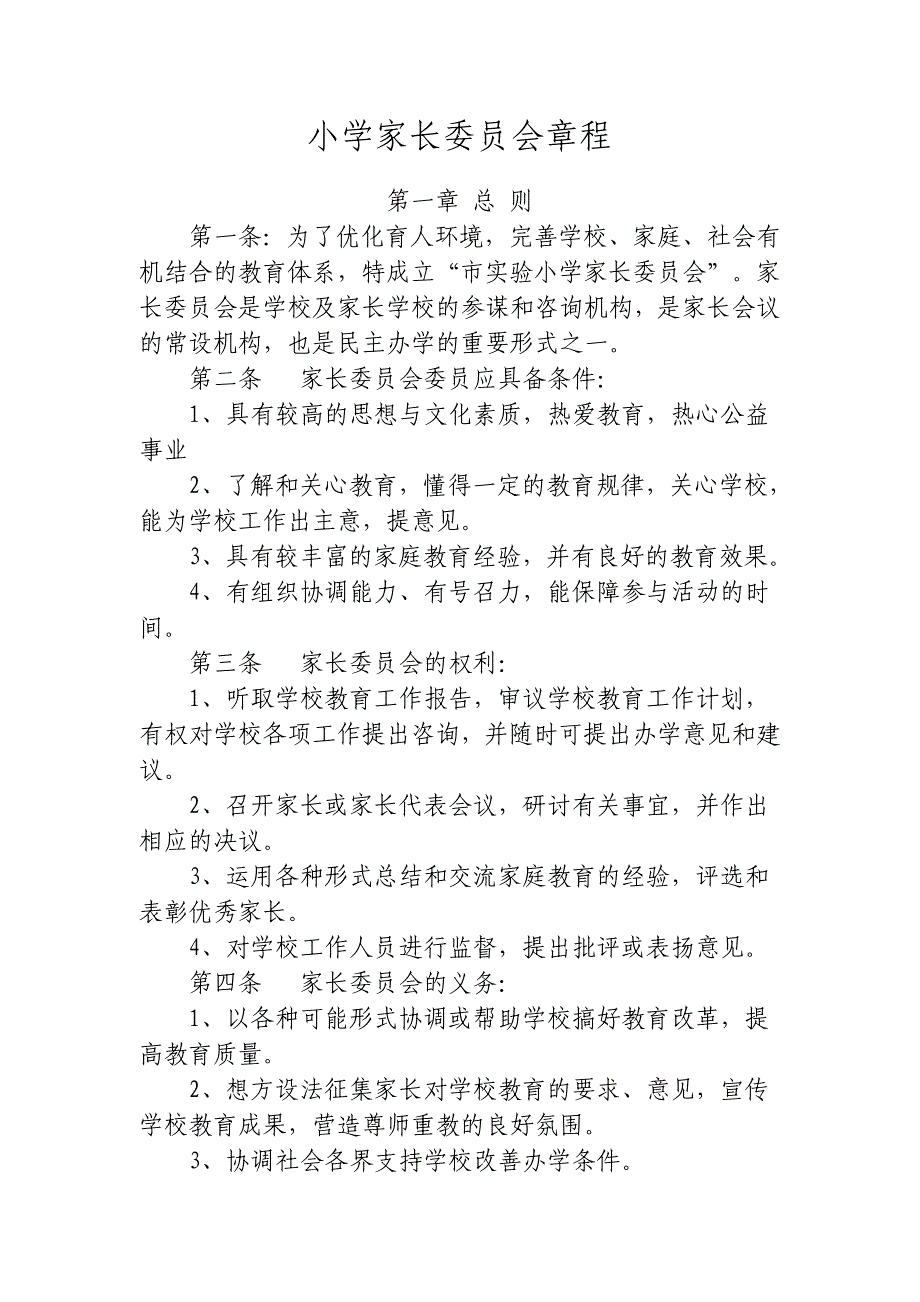 小学家长委员会章程
第一章 总 则
第一条：为了优化育人环境，完善学校、家庭、社会有
机结合的教育体系，特成立“市实验小学家长委员会”。家
长委员会是学校及家长学校的参谋和咨询机构，是家长会议
的常设机构，也是民主办学的重要形式之一。
第二条 家长委员会委员应具备条件：
1、具有较高的思想与文化素质，热爱教育，热心公益
事业
2、了解和关心教育，懂得一定的教育规律，关心学校，
能为学校工作出主意，提意见。
3、具有较丰富的家庭教育经验，并有良好的教育效果。
4、有组织协调能力、有号召力，能保障参与活动的时
间。
第三条 家长委员会的权利：
1、听取学校教育工作报告，审议学校教育工作计划，
有权对学校各项工作提出咨询，并随时可提出办学意见和建
议。
2、召开家长或家长代表会议，研讨有关事宜，并作出
相应的决议。
3、运用各种形式总结和交流家庭教育的经验，评选和
表彰优秀家长。
4、对学校工作人员进行监督，提出批评或表扬意见。
第四条 家长委员会的义务：
1、以各种可能形式协调或帮助学校搞好教育改革，提
高教育质量。
2、想方设法征集家长对学校教育的要求、意见，宣传
学校教育成果，营造尊师重教的良好氛围。
3、协调社会各界支持学校改善办学条件。